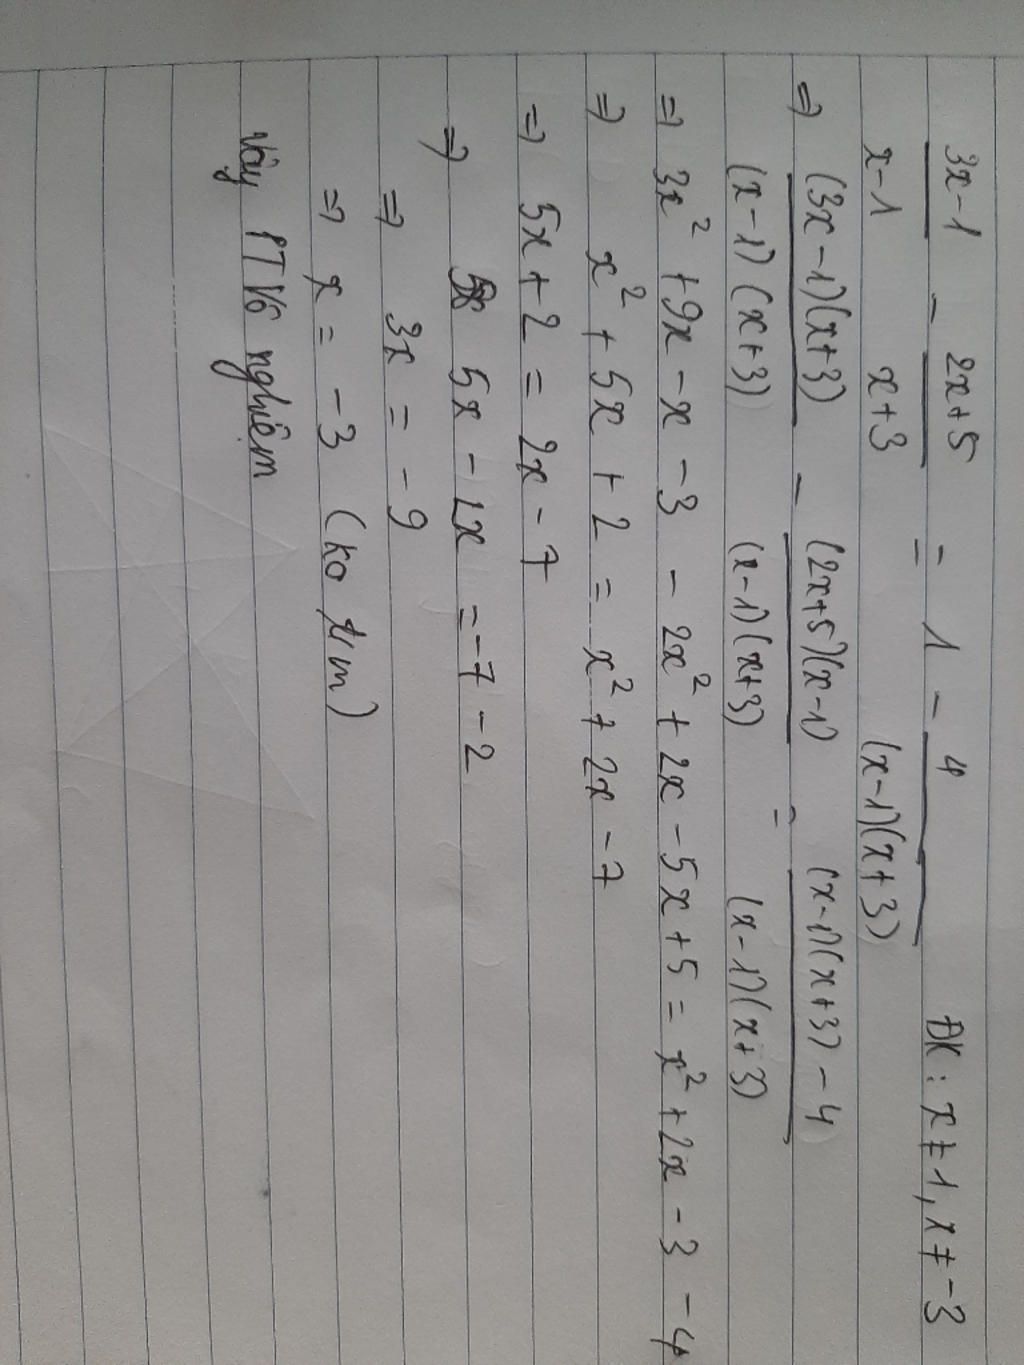 3x-1/x-1 - 2x+5/x+3 = 1 - 4/(x-1)(x+3) ĐK: x≠1, x≠-3
=> (3x-1)(x+3)/(x-1)(x+3) - (2x+5)(x-1)/(x-1)(x+3) = (x-1)(x+3)-4/(x-1)(x+3)
=> 3x² + 9x - x - 3 - 2x² + 2x - 5x + 5 = x² + 2x - 3 - 4
=> x² + 5x + 2 = x² + 2x - 7
=> 5x + 2 = 2x - 7
=> 5x - 2x = -7 - 2
=> 3x = -9
=> x = -3 (ko t/m)
Vậy PT Vô nghiệm